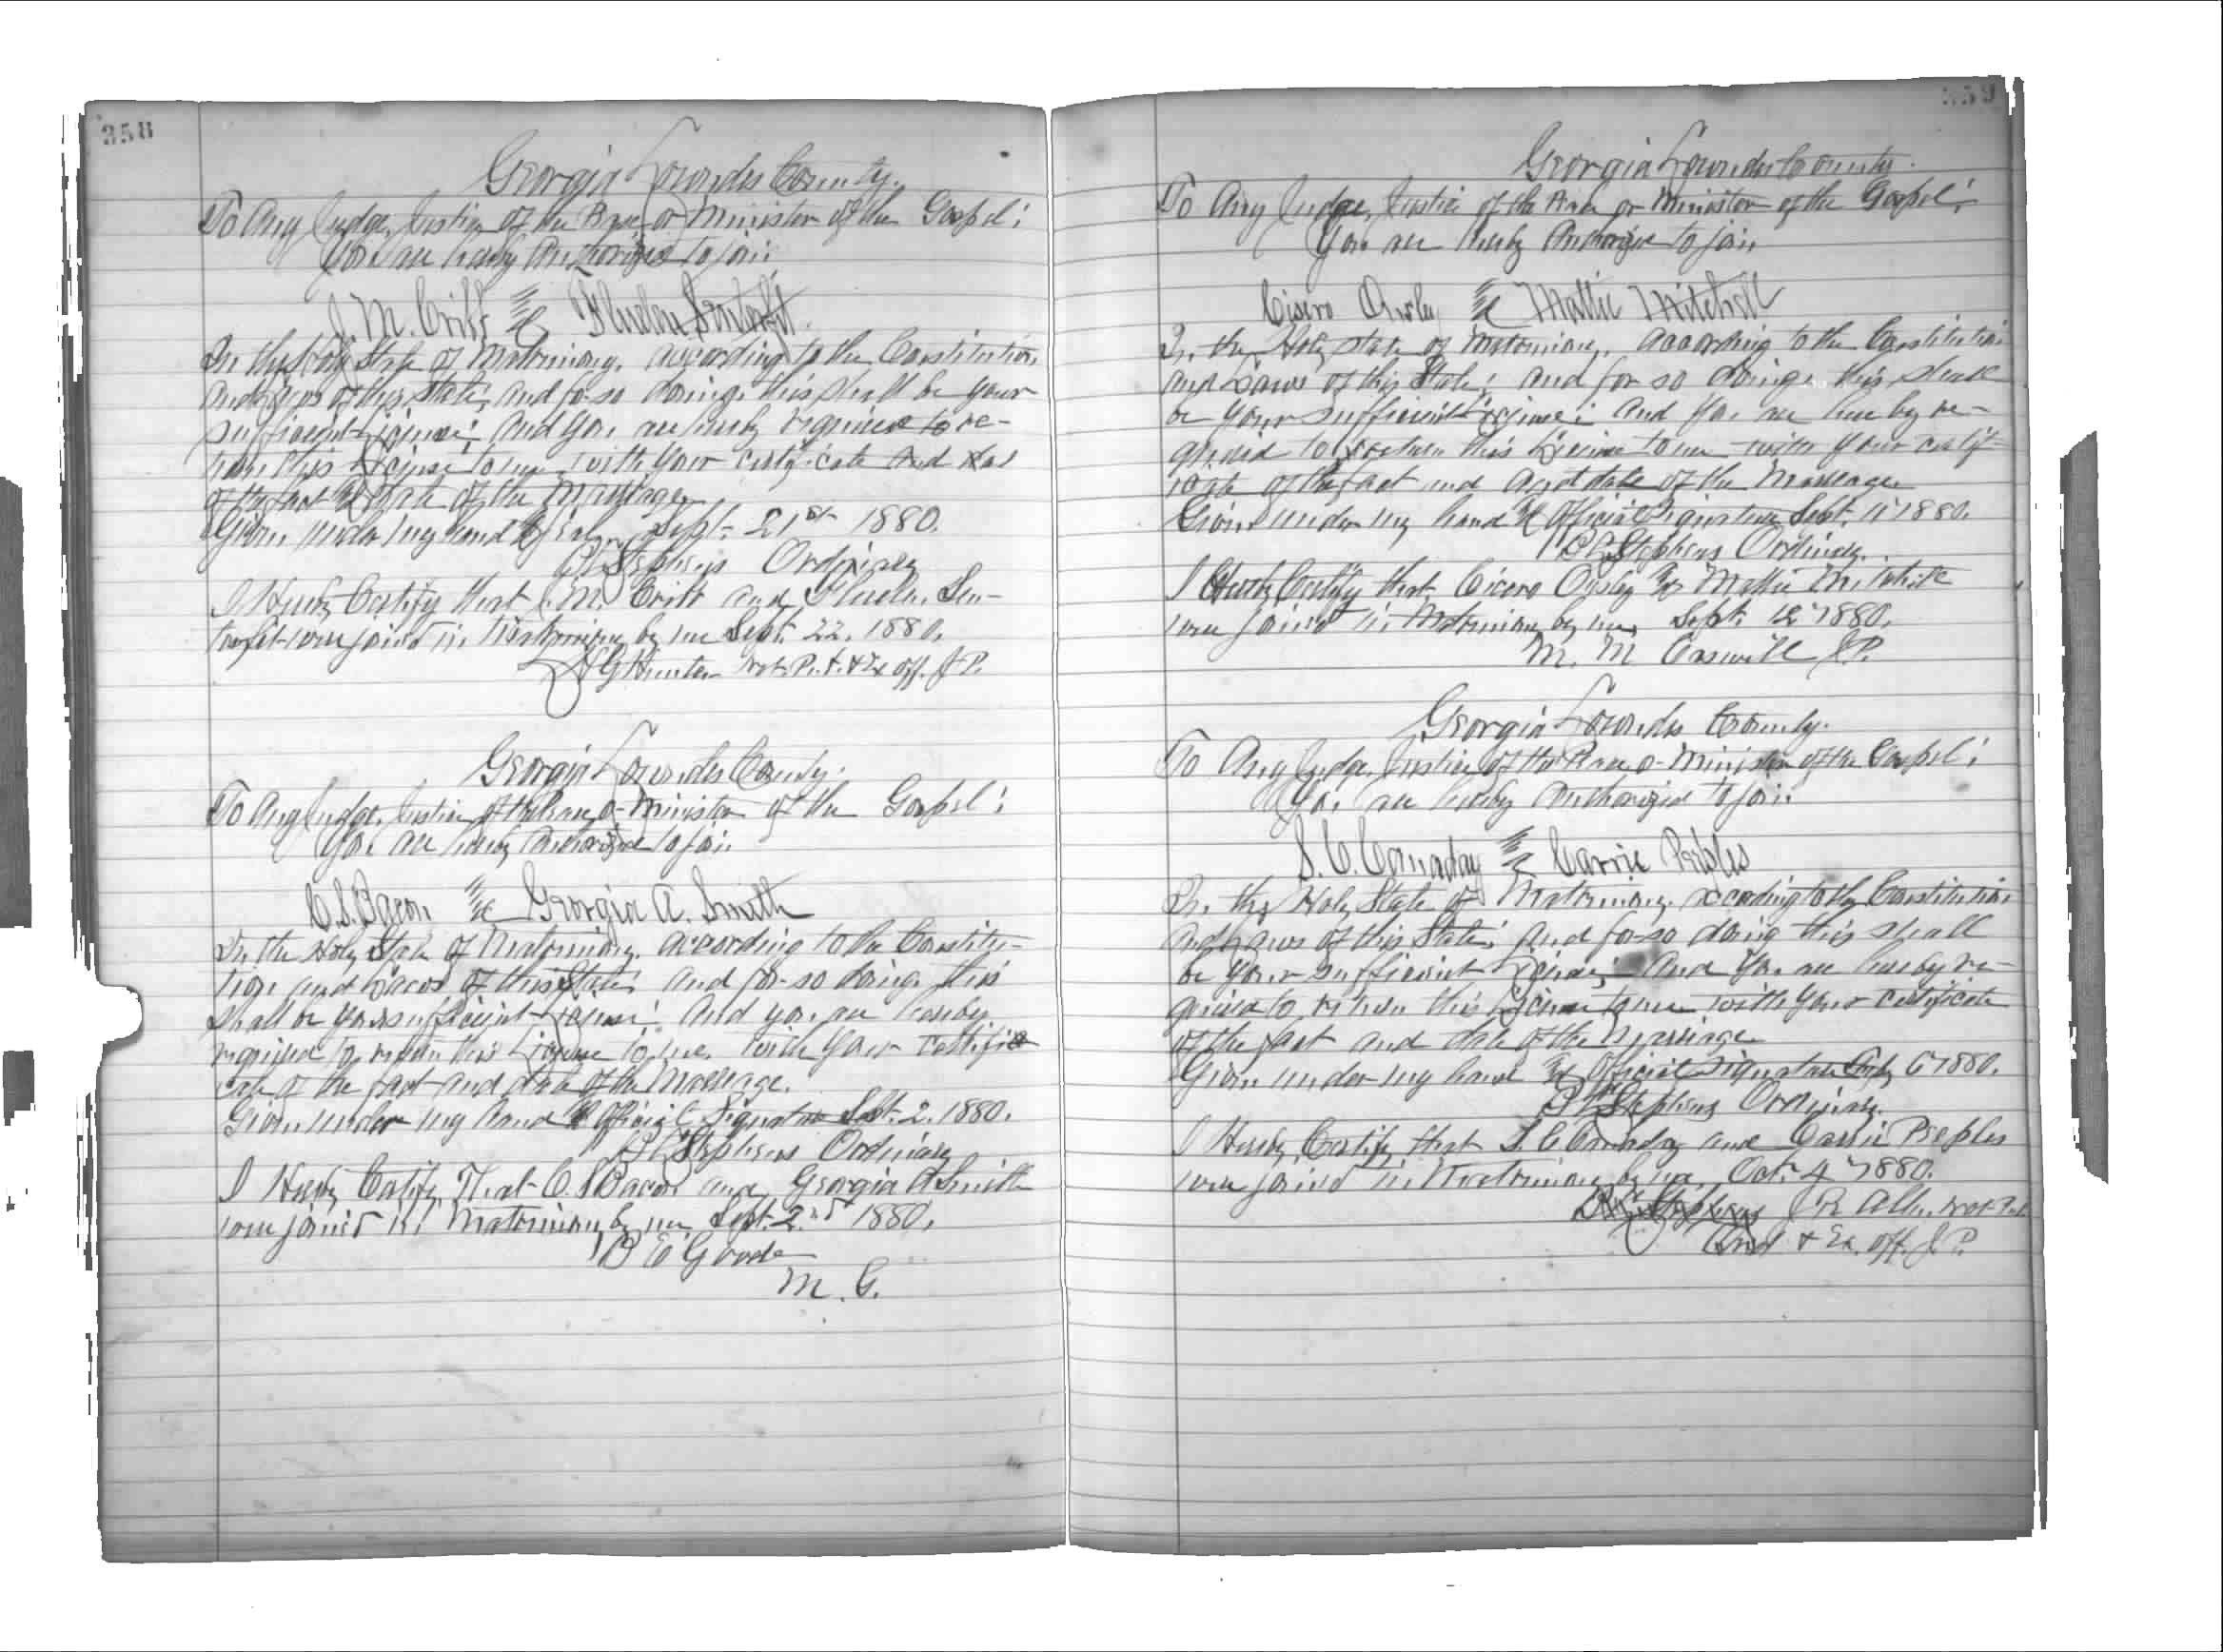 358
Georgia Lowndes County.
To Any Judge, Justice of the Peace or Minister of the Gospel:
You are hereby Authorized to join
J. M. Crift &
In the Holy State of Matrimony, according to the Constitution
and Laws of this State, and for so doing this shall be your
sufficient License; And you are hereby required to re-
turn this License to me with your certificate
of the fact & date of the Marriage.
Given under my hand & Seal Sept. 21st 1880.
Stephens Ordinary
I Hereby Certify that J. M. Crift and
were joined in Matrimony by me Sept. 22. 1880.
Hunter Not. P. & Ex off. J P.
Georgia Lowndes County.
To Any Judge, Justice of the Peace or Minister of the Gospel:
You are hereby Authorized to join
C. S. Bacon & Georgia A. Smith
In the Holy State of Matrimony, according to the Constitu-
tion and Laws of this State; and for so doing this
shall be your sufficient License; And you are hereby
required to return this License to me, with your certifi
cate of the fact and date of the Marriage.
Given under my hand & Official Signature Sept. 2. 1880.
Stephens Ordinary
I Hereby Certify That C. S Bacon and Georgia A Smith
were joined in Matrimony by me Sept. 2nd 1880.
M. G.
359
Georgia Lowndes County.
To Any Judge, Justice of the Peace or Minister of the Gospel:
You are hereby Authorized to join
Cicero Ousley & Mattie Mitchell
In the Holy State of Matrimony, according to the Constitution
and Laws of this State; and for so doing this shall
be your sufficient License; and you are hereby re-
quired to return this License to me with your certif-
icate of the fact and date of the Marriage.
Given under my hand & Official Signature Sept. 11" 1880.
Stephens Ordinary.
I Hereby Certify that Cicero Ousley & Mattie
were joined in Matrimony by me, Sept. 12" 1880.
M. M Caswell J.P.
Georgia Lowndes County.
To Any Judge, Justice of the Peace or Minister of the Gospel:
You are hereby Authorized to join
S. C. Canaday & Carrie Peeples
In the Holy State of Matrimony, according to the Constitution
and Laws of this State; and for so doing this shall
be your sufficient License; And you are hereby re-
quired to return this License to me with your certificate
of the fact and date of the Marriage.
Given under my hand & Official Signature 1880.
Stephens Ordinary.
I Hereby Certify that S. C Canaday and Carrie Peeples
were joined in Matrimony by me, Oct. 4" 1880.
J R Not Pub
& Ex. off. J. P.